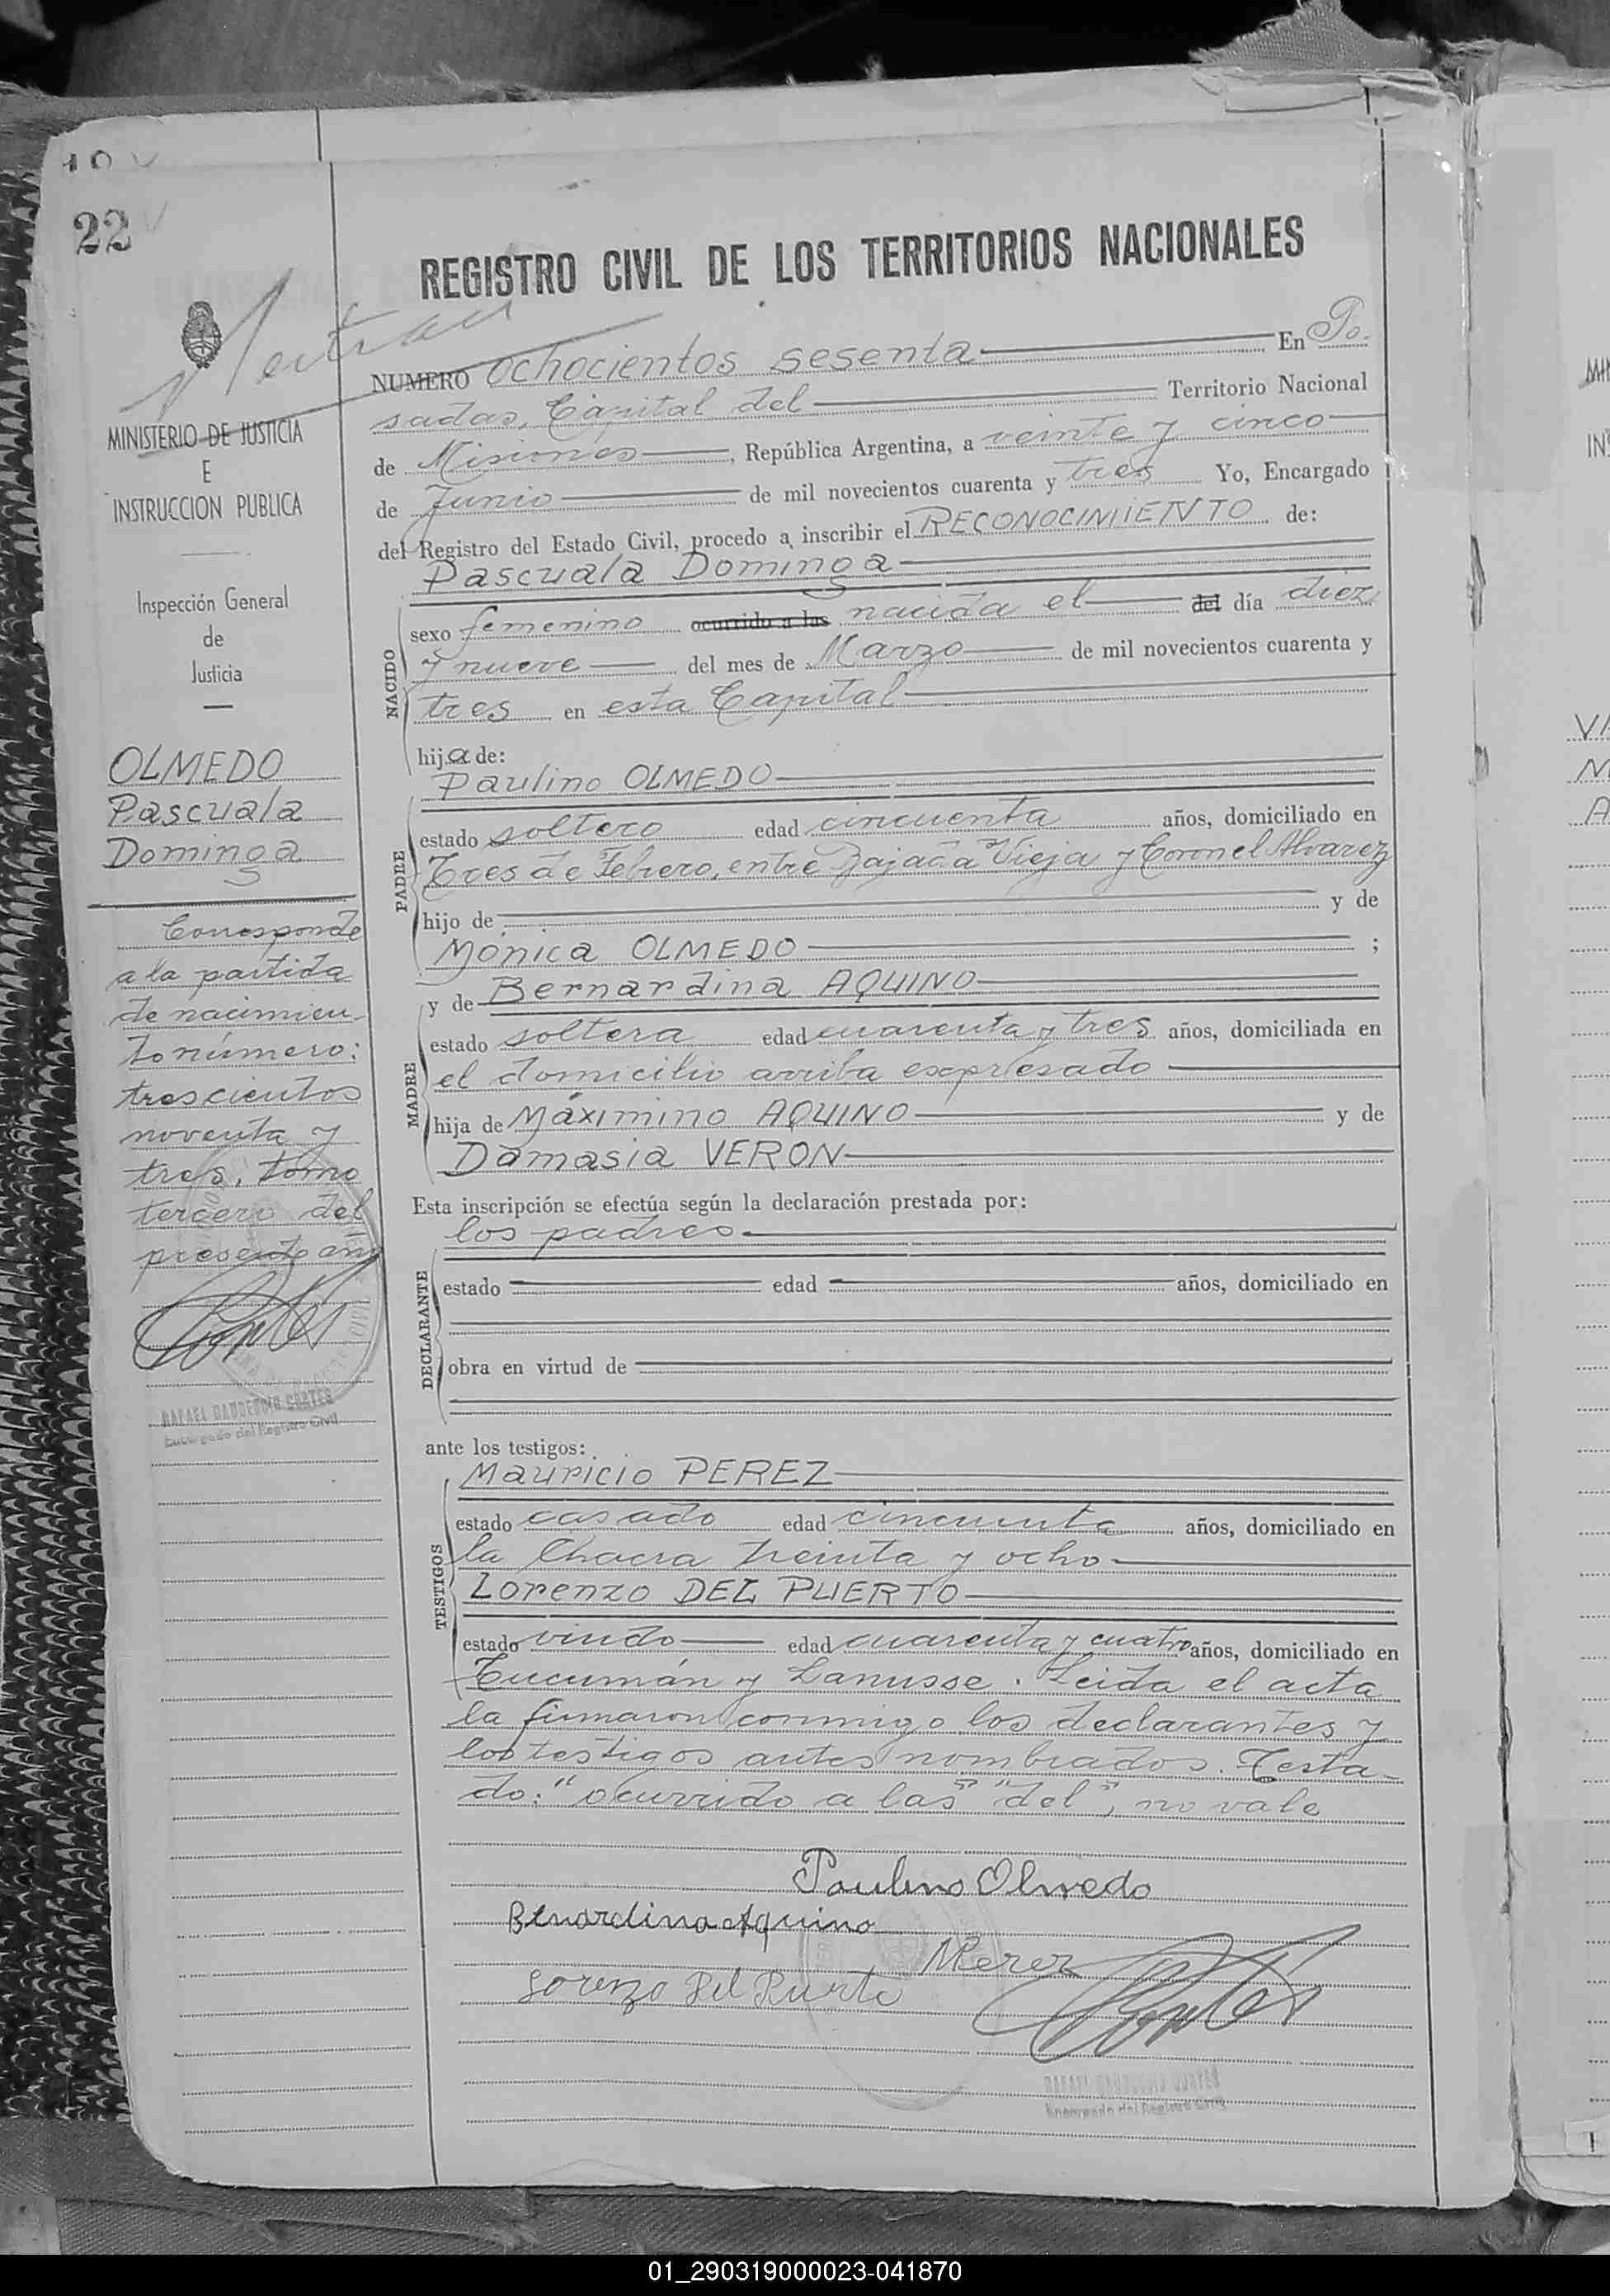 22
REGISTRO CIVIL DE LOS TERRITORIOS NACIONALES
MINISTERIO DE JUSTICIA
E
INSTRUCCION PUBLICA
Inspección General
de
Justicia
OLMEDO
Pascuala
Dominga
Corresponde
a la partida
de nacimien-
to número:
trescientos
noventa y
tres, tomo
tercero del
presente año
RAFAEL GAUDENCIO CORTES
Encargado del Registro Civil
NUMERO ochocientos sesenta En Po-
sadas, Capital del Territorio Nacional
de Misiones, República Argentina, a veinte y cinco
de Junio de mil novecientos cuarenta y tres Yo, Encargado
del Registro del Estado Civil, procedo a inscribir el RECONOCIMIENTO de:
Pascuala Dominga
NACIDO
sexo femenino ocurrido a las nacida el del día diez
y nueve del mes de Marzo de mil novecientos cuarenta y
tres en esta Capital
hija de:
Paulino OLMEDO
PADRE
estado soltero edad cincuenta años, domiciliado en
Tres de Febrero, entre Bajada Vieja y Coronel Alvarez
hijo de y de
Mónica OLMEDO ;
y de Bernardina AQUINO
MADRE
estado soltera edad cuarenta y tres años, domiciliada en
el domicilio arriba expresado
hija de Máximino AQUINO y de
Damasia VERON
Esta inscripción se efectúa según la declaración prestada por:
los padres
DECLARANTE
estado edad años, domiciliado en
obra en virtud de
ante los testigos:
Mauricio PEREZ
TESTIGOS
estado casado edad cincuenta años, domiciliado en
la Chacra treinta y ocho
Lorenzo DEL PUERTO
estado viudo edad cuarenta y cuatro años, domiciliado en
Tucumán y Lanusse. Leida el acta
la firmaron conmigo los declarantes y
los testigos antes nombrados. Testa-
do: "ocurrido a las" "del", no vale
Paulino Olmedo
Benardina Aquino
MPerez
Lorenzo Del Puerto
RAFAEL GAUDENCIO CORTES
Encargado del Registro Civil
01_290319000023-041870